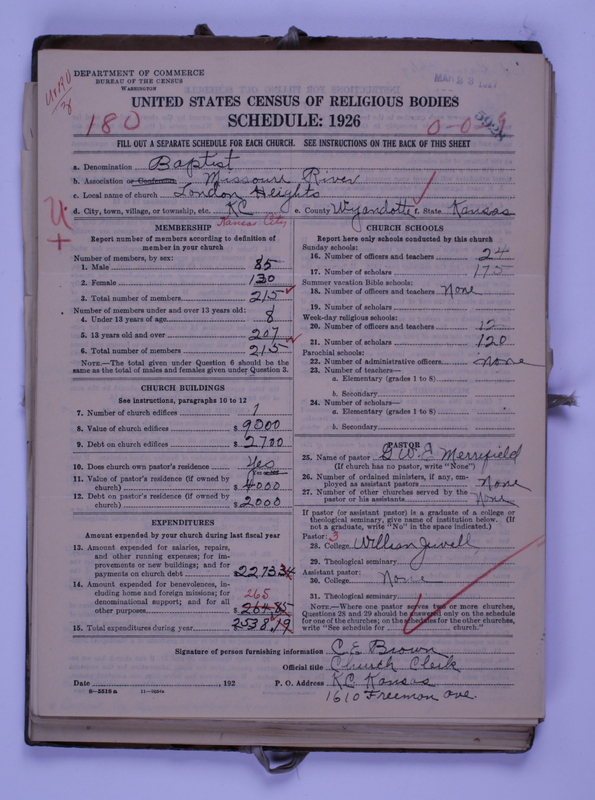 DEPARTMENT OF COMMERCE
BUREAU OF THE CENSUS
WASHINGTON
UNITED STATES CENSUS OF RELIGIOUS BODIES
SCHEDULE: 1926
180
0-0-9
FILL OUT A SEPARATE SCHEDULE FOR EACH CHURCH. SEE INSTRUCTIONS ON THE BACK OF THIS SHEET
a. Denomination Baptist
b. Association or Conference Missouri River
c. Local name of church London Heights
d. City, town, village, or township, etc. KC e. County Wyandotte f. State Kansas
Kansas City
MEMBERSHIP
Report number of members according to definition of
member in your church
Number of members, by sex:
1. Male 85
2. Female 130
3. Total number of members 215
Number of members under and over 13 years old:
4. Under 13 years of age 8
5. 13 years old and over 207
6. Total number of members 215
NOTE.—The total given under Question 6 should be the
same as the total of males and females given under Question 3.
CHURCH BUILDINGS
See instructions, paragraphs 10 to 12
7. Number of church edifices 1
8. Value of church edifices $ 9000
9. Debt on church edifices $ 2700
10. Does church own pastor's residence Yes
(Yes or No)
11. Value of pastor's residence (if owned by
church) $ 4000
12. Debt on pastor's residence (if owned by
church) $ 2000
EXPENDITURES
Amount expended by your church during last fiscal year
13. Amount expended for salaries, repairs,
and other running expenses; for im-
provements or new buildings; and for
payments on church debt $ 2273 34
14. Amount expended for benevolences, in-
cluding home and foreign missions; for
denominational support; and for all
other purposes $ 264.85
265
15. Total expenditures during year 2538.19
CHURCH SCHOOLS
Report here only schools conducted by this church
Sunday schools:
16. Number of officers and teachers 24
17. Number of scholars 175
Summer vacation Bible schools:
18. Number of officers and teachers None
19. Number of scholars
Week-day religious schools:
20. Number of officers and teachers 12
21. Number of scholars 120
Parochial schools:
22. Number of administrative officers None
23. Number of teachers—
a. Elementary (grades 1 to 8)
b. Secondary
24. Number of scholars—
a. Elementary (grades 1 to 8)
b. Secondary
PASTOR
25. Name of pastor G W. E Merrefield
(If church has no pastor, write "None")
26. Number of ordained ministers, if any, em-
ployed as assistant pastors None
27. Number of other churches served by the
pastor or his assistants None
If pastor (or assistant pastor) is a graduate of a college or
theological seminary, give name of institution below. (If
not a graduate, write "No" in the space indicated.)
Pastor: 3
28. College William Juvell
29. Theological seminary
Assistant pastor:
30. College None
31. Theological seminary
NOTE.—Where one pastor serves two or more churches,
Questions 28 and 29 should be answered only on the schedule
for one of the churches; on the schedules for the other churches,
write "See schedule for church."
Signature of person furnishing information C.E Brown
Official title Church Clerk
Date , 192 P. O. Address KC Kansas
8-5318a
1610 Freeman ave.